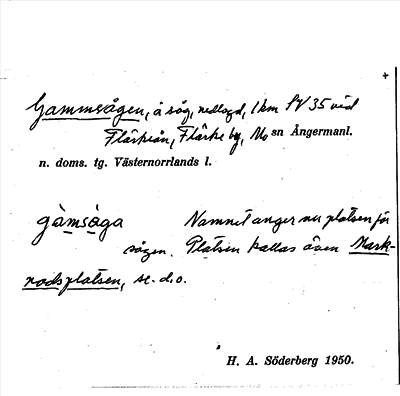 Gammsågen, å såg, nedlagd, 1 km SV 35 vid
Flärkeån, Flärke by, Mo sn Ångermanl.
n. doms. tg. Västernorrlands l.
gàmsàga Namnet anger nu platsen för
sågen. Platsen kallas även Mark-
nadsplatsen, se. d. o.
H. A. Söderberg 1950.